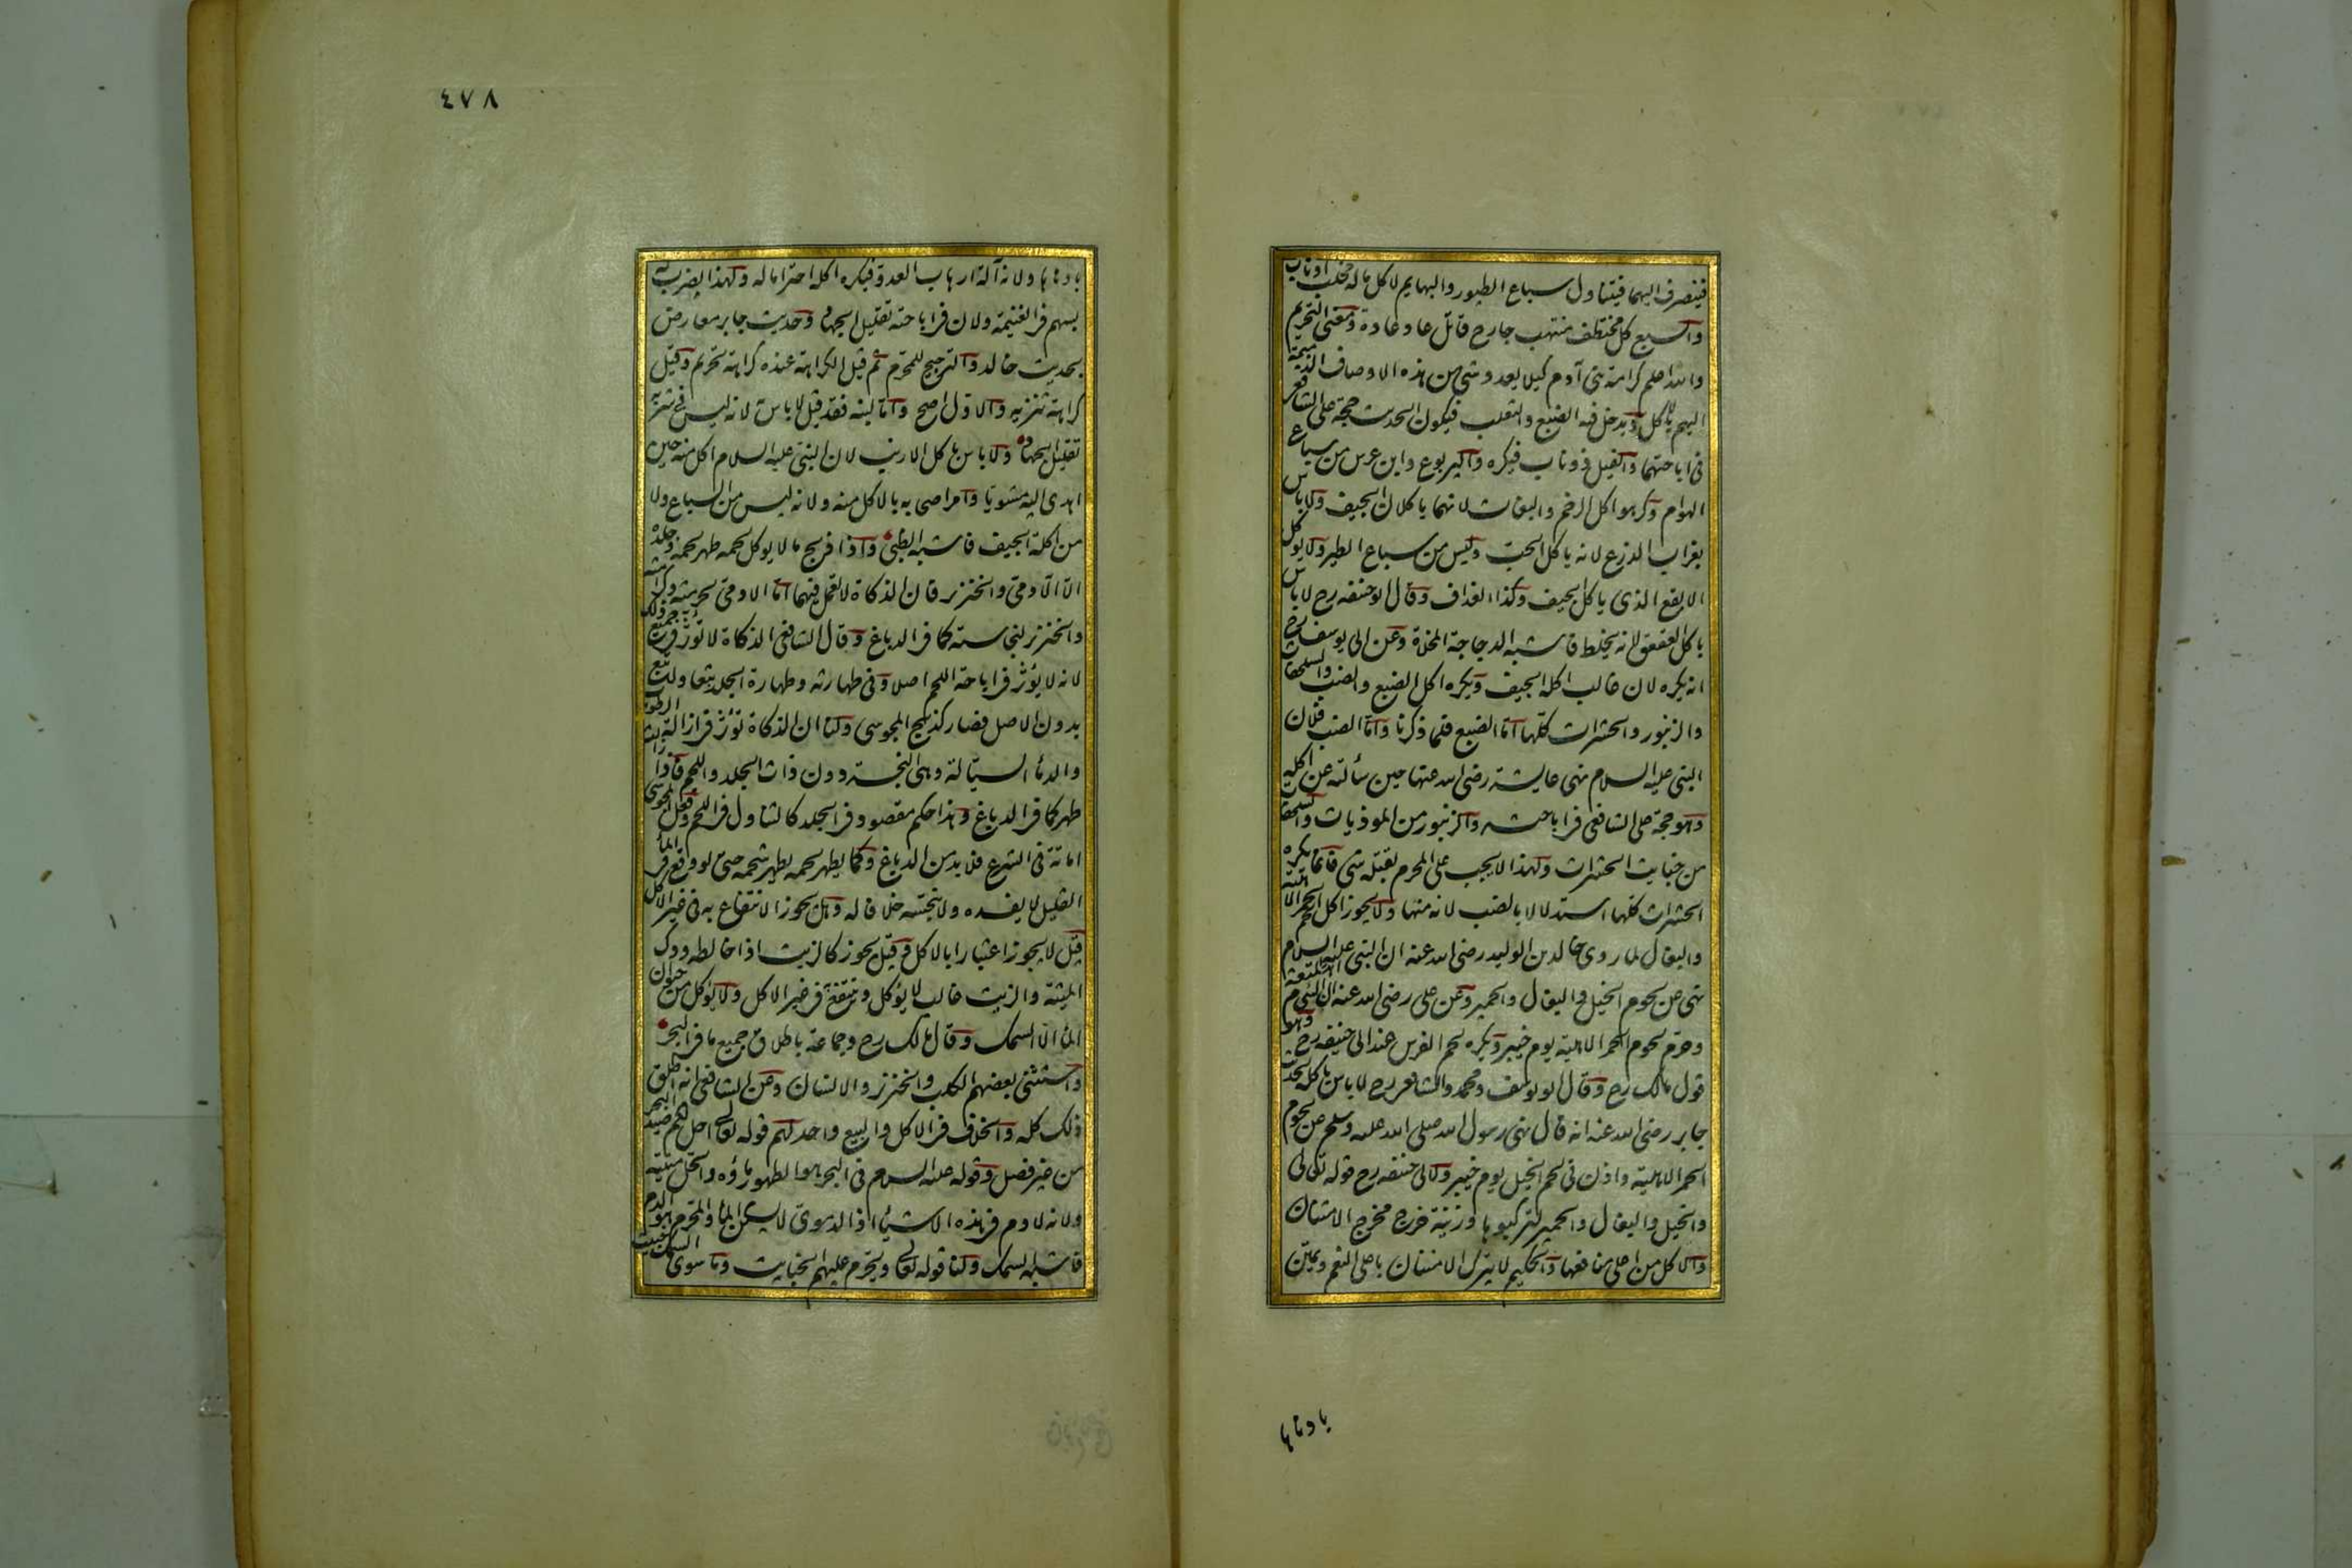 فينصرف اليهما فيتناول سباع الطيور والبهايم لا كل ماله مخلب او ناب
والسبع كل مختطف منتهب جارح قاتل عاد عادة ومعنى التحريم
والله اعلم كرامة بني آدم كيلا يعدو شئ من هذه الاوصاف الذميمة
اليهم بالاكل ويدخل فيه الضبع والثعلب فيكون الحديث حجة على الشافعي
في اباحتهما والفيل ذو ناب فيكره واليربوع وابن عرس من سباع
الهوام وكرهوا اكل الرخم والبغاث لانهما ياكلان الجيف ولا باس
بغراب الزرع لانه ياكل الحب وليس من سباع الطير ولا يوكل
الابقع الذي ياكل الجيف وكذا الغداف وقال ابو حنيفه رح لا باس
باكل العقعق لانه يخلط فاشبه الدجاجة المخلاة وعن ابي يوسف رح
انه يكره لان غالب اكله الجيف ويكره اكل الضبع والضب والسلحفاة
والزنبور والحشرات كلها اما الضبع فلما ذكرنا واما الضب فلان
النبي عليه السلام نهى عايشة رضي الله عنها حين سألته عن اكله
وهو حجة على الشافعي في اباحته والزنبور من الموذيات والسلحفاة
من خبايث الحشرات ولهذا لا يجب على المحرم بقتله شئ وانما يكره
الحشرات كلها استدلالا بالضب لانه منها ولا يجوز اكل الحمر الاهلية
والبغال لما روى خالد بن الوليد رضي الله عنه ان النبي عليه السلام
نهى عن لحوم الخيل والبغال والحمير وعن علي رضي الله عنه ان النبي عليه السلام اهدر المتعة
وحرم لحوم الحمر الاهلية يوم خيبر ويكره لحم الفرس عند ابي حنيفه رح وهو
قول مالك رح وقال ابو يوسف ومحمد والشافعي رح لا باس باكله لحديث
جابر رضي الله عنه انه قال نهى رسول الله صلى الله عليه وسلم عن لحوم
الحمر الاهلية واذن في لحم الخيل يوم خيبر ولابي حنيفه رح قوله تعالى
والخيل والبغال والحمير لتركبوها وزينة خرج مخرج الامتنان
والاكل من اعلى منافعها والحكيم لا يترك الامتنان باعلى النعم ويمتن
بادناها
٤٧٨
بادناها ولانه آلة ارهاب العدو فيكره اكله احتراما له ولهذا يضرب له
بسهم في الغنيمة ولان في اباحته تقليل الجهاد وحديث جابر معارض
بحديث خالد والترجيح للمحرم ثم قيل الكراهة عنده كراهة تحريم وقيل
كراهة تنزيه والاول اصح واما لبنه فقد قيل لا باس لانه ليس في شربه
تقليل الجهاد ولا باس باكل الارنب لان النبي عليه السلام اكل منه حين
اهدى اليه مشويا وامر اصحابه بالاكل منه ولانه ليس من السباع ولا
من اكلة الجيف فاشبه الظبي واذا ذبح ما لا يوكل لحمه طهر لحمه وجلده
الا الآدمي والخنزير فان الذكاة لا تعمل فيهما اما الآدمي لحرمته وكرامته
والخنزير لنجاسته كما في الدباغ وقال الشافعي الذكاة لا تؤثر في جميع ذلك
لانه لا يؤثر في اباحة اللحم اصلا وفي طهارته وطهارة الجلد تبعا ولا تبع
بدون الاصل فصار كذبح المجوسي ولنا ان الذكاة تؤثر في ازالة الرطوبات
والدماء السيالة وهي النجسة دون ذات الجلد واللحم فاذا زالت
طهر كما في الدباغ وهذا حكم مقصود في الجلد كالتناول في اللحم وفعل المجوسي
اماتة في الشرع فلا بد من الدباغ وكما يطهر لحمه يطهر شحمه حتى لو وقع في الماء
القليل لا يفسده ولا ينجسه خلافا له وهل يجوز الانتفاع به في غير الاكل
قيل لا يجوز اعتبارا بالاكل وقيل يجوز كالزيت اذا خالطه ودك
الميتة والزيت غالب لا يؤكل وينتفع في غير الاكل ولا يؤكل من حيوان
الماء الا السمك وقال مالك رح وجماعة باطلاق جميع ما في البحر
واستثنى بعضهم الكلب والخنزير والانسان وعن الشافعي انه اطلق
ذلك كله والخلاف في الاكل والبيع واحد لهم قوله تعالى احل لكم صيد البحر
من غير فصل وقوله عليه السلام في البحر هو الطهور ماؤه والحل ميتته
ولانه لا دم في هذه الاشياء اذ الدموي لا يسكن الماء والمحرم هو الدم
فاشبه السمك ولنا قوله تعالى ويحرم عليهم الخبايث وما سوى السمك خبيث